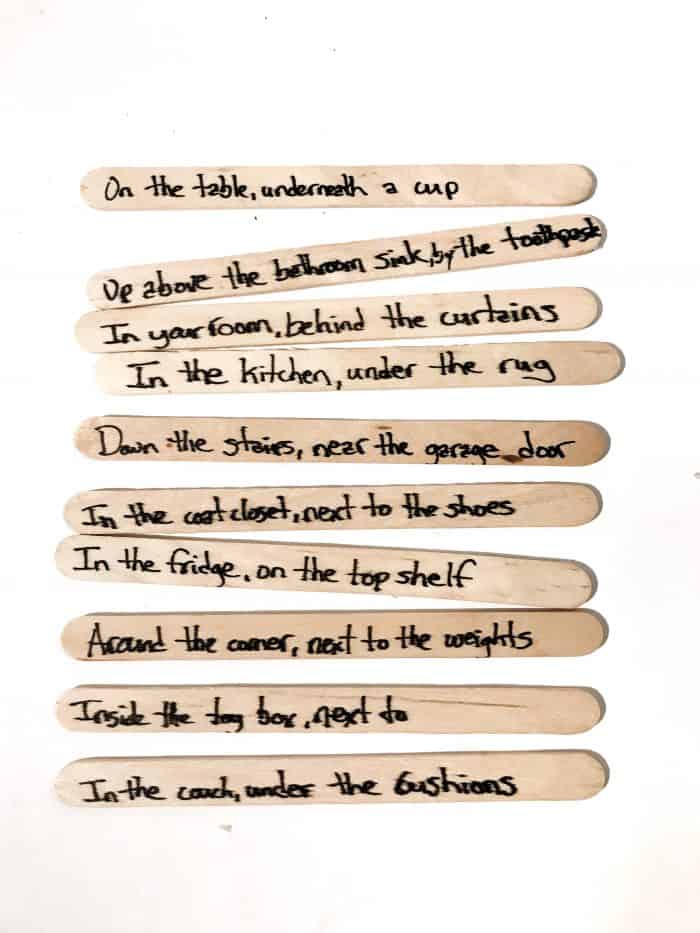 On the table, underneath a cup
Up above the bathroom sink, by the toothpaste
In your room, behind the curtains
In the kitchen, under the rug
Down the stairs, near the garage door
In the coat closet, next to the shoes
In the fridge, on the top shelf
Around the corner, next to the weights
Inside the toy box, next to
In the couch, under the cushions